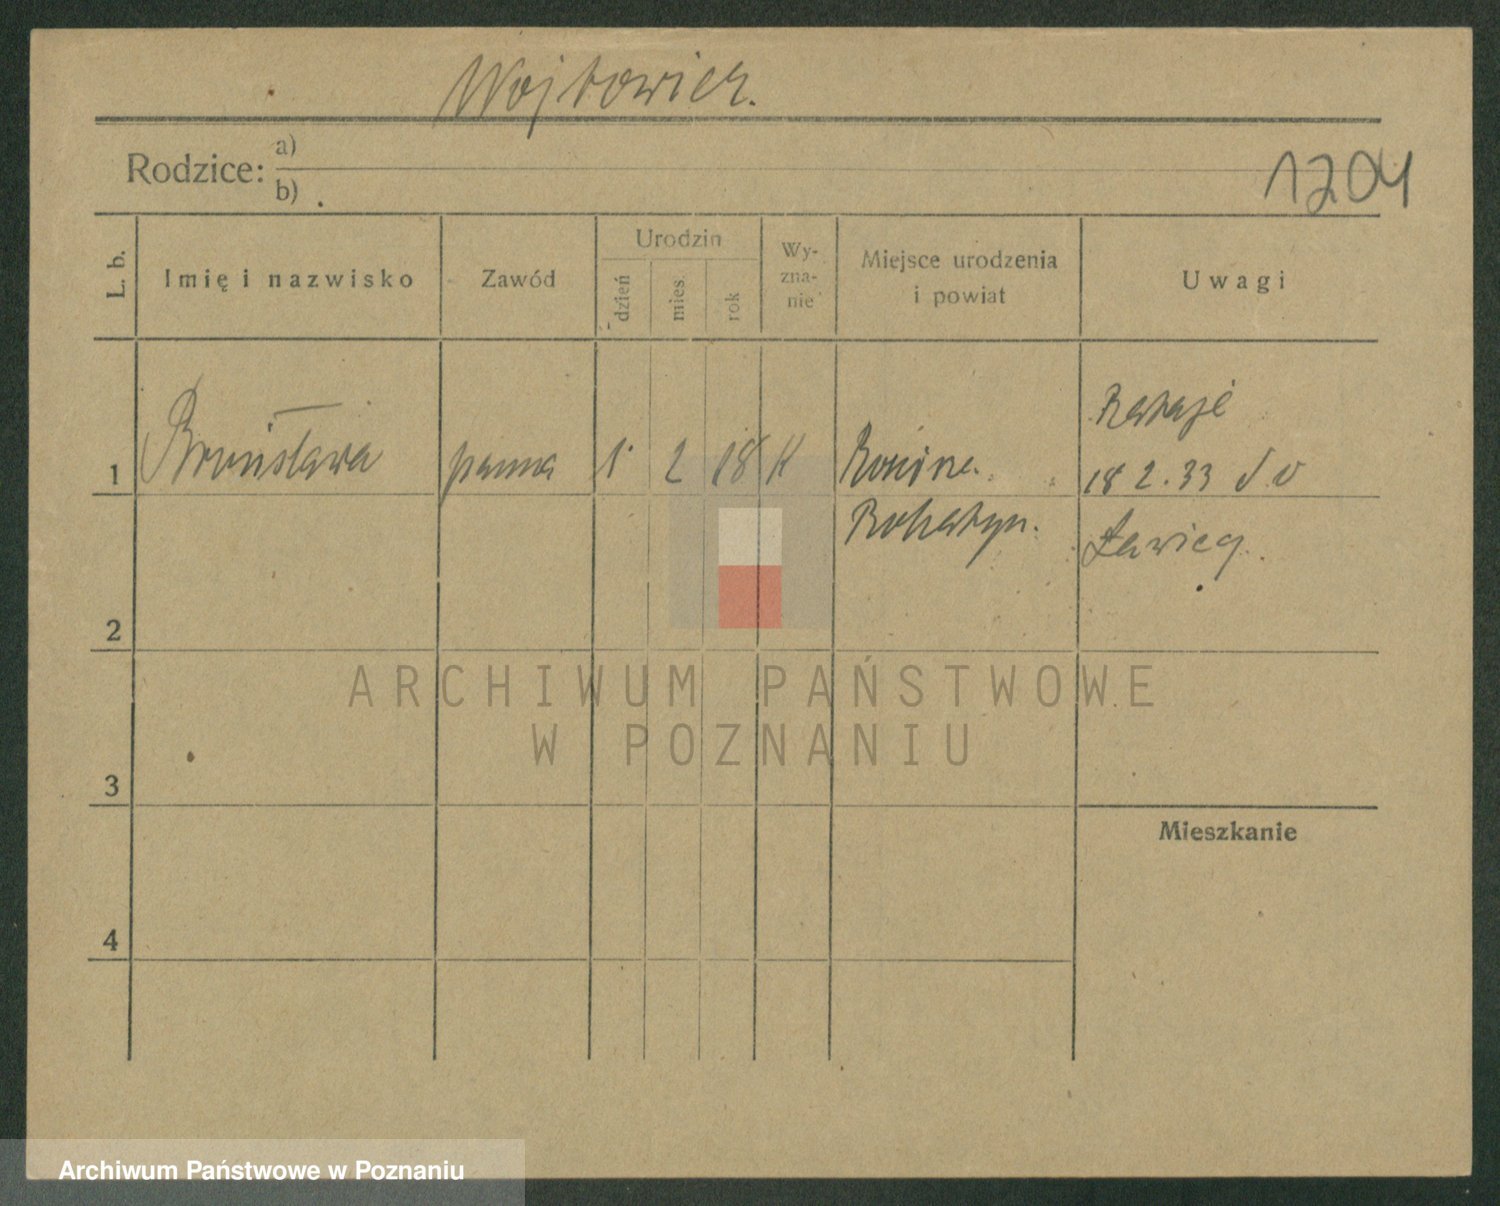 Wojtowicz.
Rodzice: a)
b)
1204
L. b.
Imię i nazwisko
Zawód
Urodzin
dzień
mies.
rok
Wy-
zna-
nie
Miejsce urodzenia
i powiat
Uwagi
1 Bronisława panna 1 2 18 K
Rohatyn.
Rataje
18 2. 33 do
Ławicy.
2
3
4
Mieszkanie
ARCHIWUM PAŃSTWOWE
W POZNANIU
Archiwum Państwowe w Poznaniu